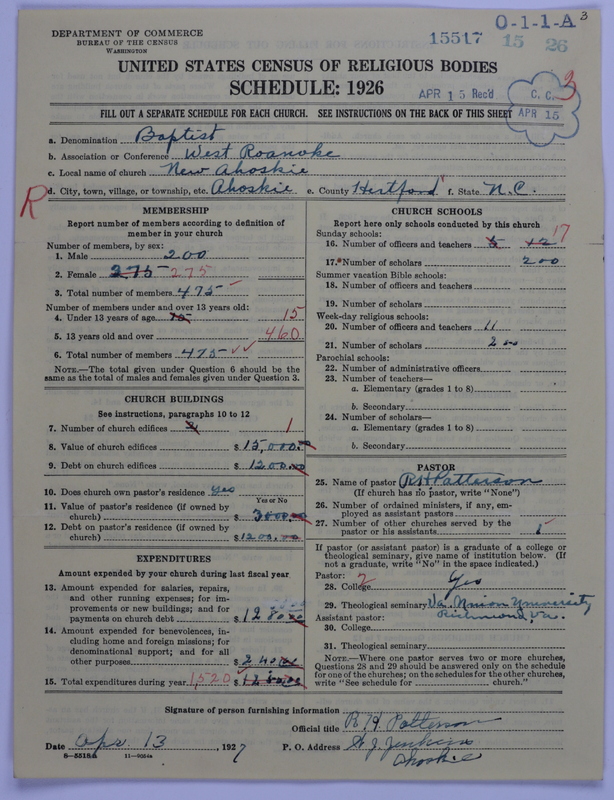 O-1-1-A 3
DEPARTMENT OF COMMERCE
BUREAU OF THE CENSUS
WASHINGTON
15517 15 26
UNITED STATES CENSUS OF RELIGIOUS BODIES
SCHEDULE: 1926
APR 15 Rec'd
C. C. 3
APR 15
FILL OUT A SEPARATE SCHEDULE FOR EACH CHURCH. SEE INSTRUCTIONS ON THE BACK OF THIS SHEET
a. Denomination Baptist
b. Association or Conference West Roanoke
c. Local name of church New Ahoskie
R
d. City, town, village, or township, etc. Ahoskie e. County Hertford f. State N.C.
MEMBERSHIP
Report number of members according to definition of
member in your church
Number of members, by sex:
1. Male 200
2. Female 275 275
3. Total number of members 475
Number of members under and over 13 years old:
4. Under 13 years of age 15 15
5. 13 years old and over 460
6. Total number of members 475
NOTE.—The total given under Question 6 should be the
same as the total of males and females given under Question 3.
CHURCH BUILDINGS
See instructions, paragraphs 10 to 12
7. Number of church edifices 1
8. Value of church edifices $ 15,000.00
9. Debt on church edifices $ 1200.00
10. Does church own pastor's residence yes
Yes or No
11. Value of pastor's residence (if owned by
church) $ 3000.00
12. Debt on pastor's residence (if owned by
church) $ 1200.00
EXPENDITURES
Amount expended by church during last fiscal year
13. Amount expended for salaries, repairs,
and other running expenses; for im-
provements or new buildings; and for
payments on church debt $ 1280.00
14. Amount expended for benevolences, in-
cluding home and foreign missions; for
denominational support; and for all
other purposes $ 240.00
15. Total expenditures during year 1,520 $
CHURCH SCHOOLS
Report here only schools conducted by this church
Sunday schools:
16. Number of officers and teachers 5 +2 17
17. Number of scholars 200
Summer vacation Bible schools:
18. Number of officers and teachers
19. Number of scholars
Week-day religious schools:
20. Number of officers and teachers 11
21. Number of scholars 200
Parochial schools:
22. Number of administrative officers
23. Number of teachers—
a. Elementary (grades 1 to 8)
b. Secondary
24. Number of scholars—
a. Elementary (grades 1 to 8)
b. Secondary
PASTOR
25. Name of pastor R H Patterson
(If church has no pastor, write "None")
26. Number of ordained ministers, if any, em-
ployed as assistant pastors
27. Number of other churches served by the
pastor or his assistants
If pastor (or assistant pastor) is a graduate of a college or
theological seminary, give name of institution below. (If
not a graduate, write "No" in the space indicated.)
Pastor:
28. College 2 Yes
29. Theological seminary Va. Union University
Assistant pastor: Richmond, Va.
30. College
31. Theological seminary
NOTE.—Where one pastor serves two or more churches,
Questions 28 and 29 should be answered only on the schedule
for one of the churches; on the schedules for the other churches,
write "See schedule for church."
Signature of person furnishing information
Official title R. H. Patterson
Date Apr. 13, 1927 P. O. Address Jenkins
Ahoskie
8—5518a 11—9034a